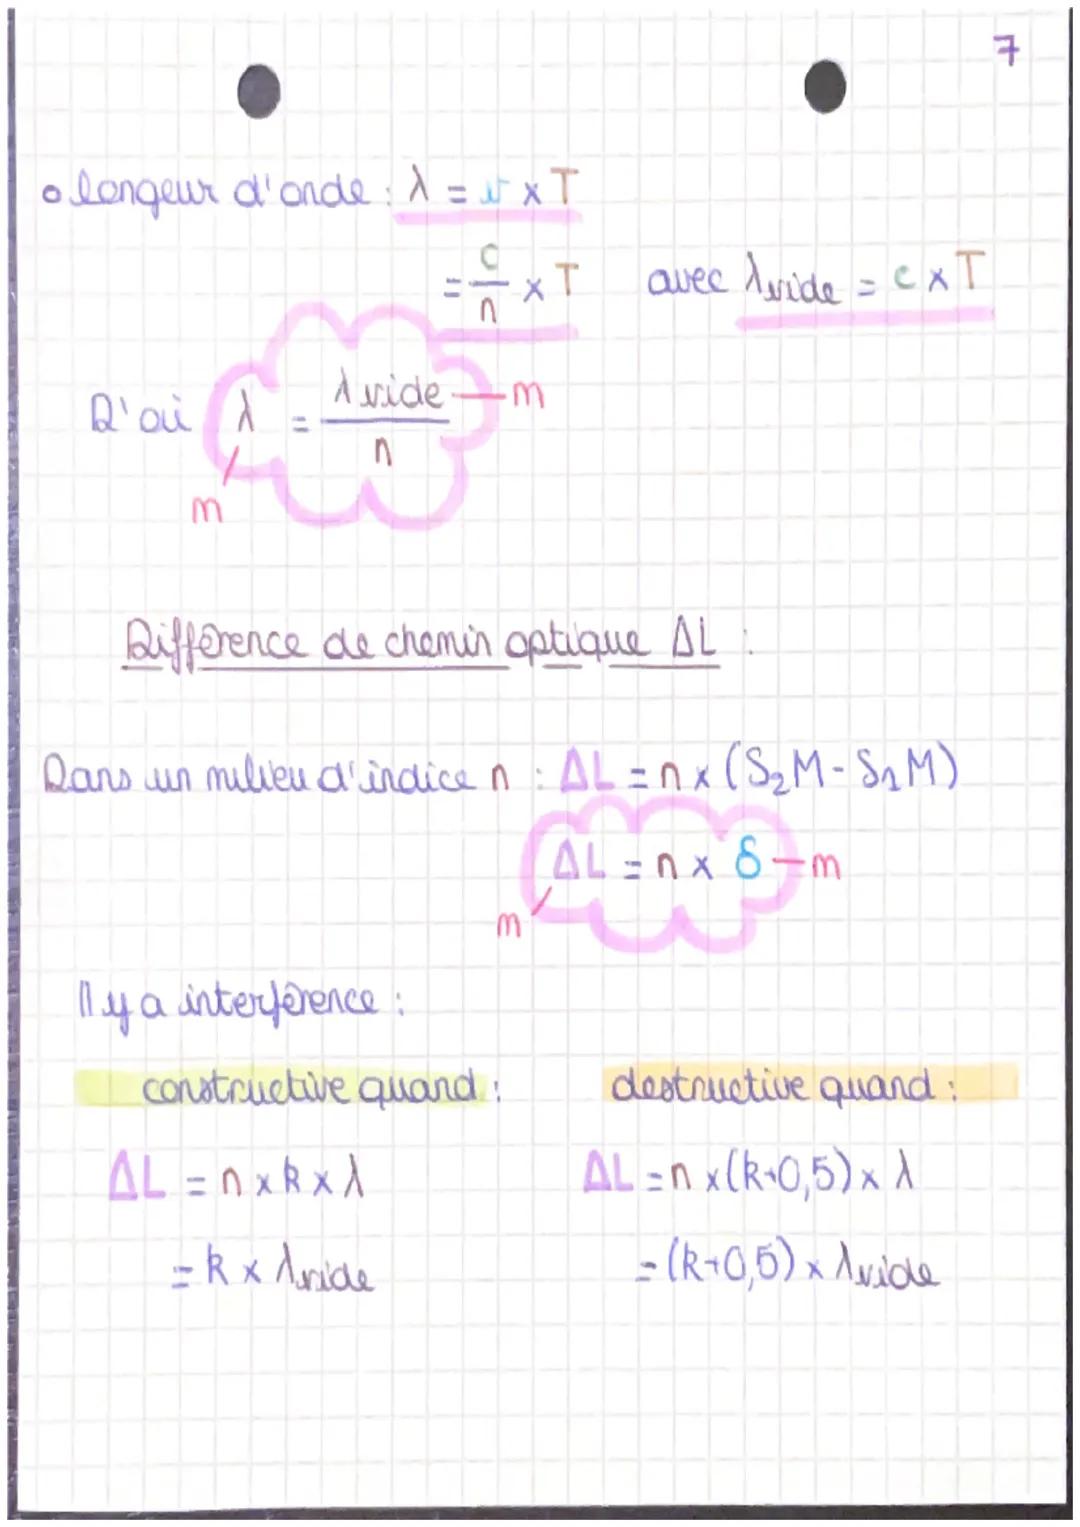 7
o longeur d'onde : λ = v x T
= c/n x T avec λvide = c x T
D'où λ = λvide/n — m
m
Différence de chemin optique ΔL :
Dans un milieu d'indice n : ΔL = n x (S₂M - S₁M)
ΔL = n x δ — m
m
Il y a interférence :
constructive quand : destructive quand :
ΔL = n x k x λ ΔL = n x (k+0,5) x λ
= k x λvide = (k+0,5) x λvide